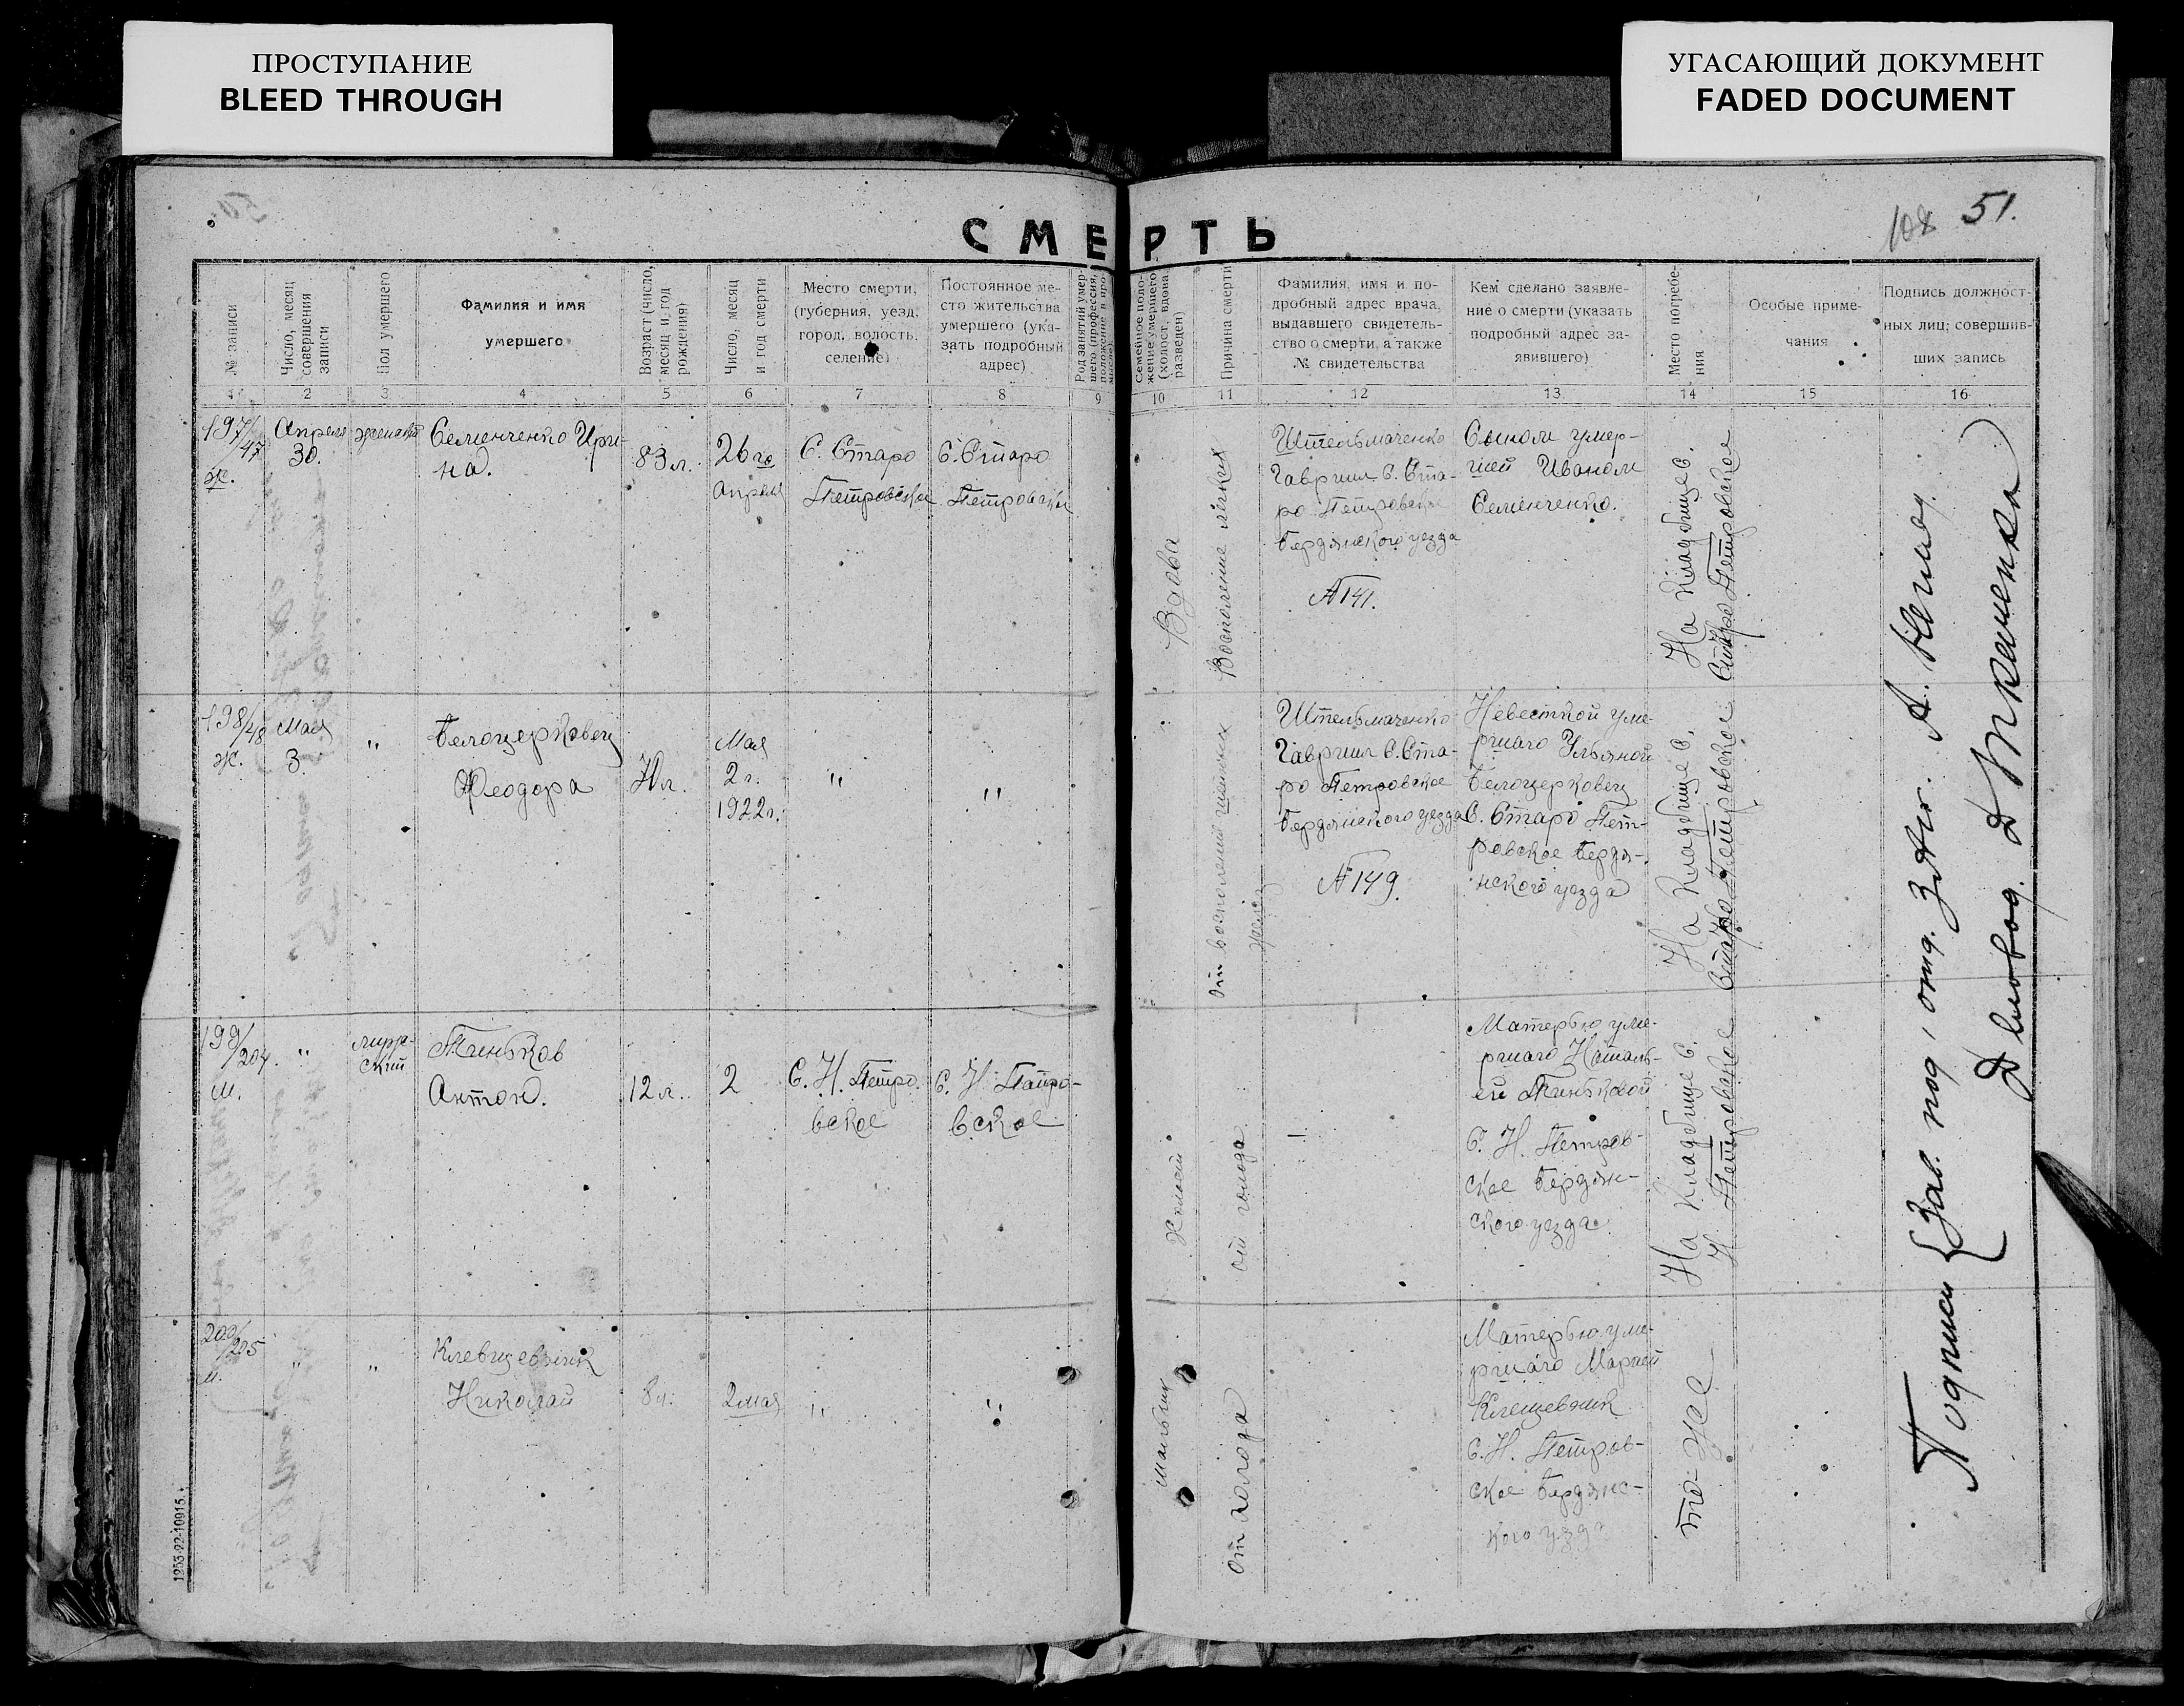 ПРОСТУПАНИЕ
BLEED THROUGH
УГАСАЮЩИЙ ДОКУМЕНТ
FADED DOCUMENT
51.
СМЕРТЬ
№ записи
Число, месяц
совершения
записи
Пол умершего
Фамилия и имя
умершего
Возраст (число,
месяц и год
рождения)
Число, месяц
и год смерти
Место смерти,
(губерния, уезд,
город, волость,
селение)
Постоянное ме-
сто жительства
умершего (ука-
зать подробный
адрес)
Род занятий умер-
шего (профессия,
положение в про-
мысле)
Семейное поло-
жение умершего
(холост, вдова,
разведен)
Причина смерти
Фамилия, имя и по-
дробный адрес врача,
выдавшего свидетель-
ство о смерти, а также
№ свидетельства
Кем сделано заявле-
ние о смерти (указать
подробный адрес за-
явившего)
Место погребе-
ния
Особые приме-
чания
Подпись должност-
ных лиц, совершив-
ших запись
1 2 3 4 5 6 7 8 9 10 11 12 13 14 15 16
197/47
ж.
Апреля
30.
женский
Семенченко Ири-
на.
83 л.
26 го
Апреля
С. Старо
Петровское
С. Старо
Петровское
Вдова
Воспаление лёгких
Штельмаченко
Гавриил С. Ста-
ро Петровское
Бердянского уезда
№ 141.
Сыном умер-
шей Иваном
Семенченко.
На Кладбище С.
Старо Петровское
198/48
ж.
Мая
3.
"
Белоцерковец
Феодора
70 л.
Мая
2 г.
1922 г.
"
"
От воспаления
желез
Штельмаченко
Гавриил С. Ста-
ро Петровское
Бердянского уезда
№ 149.
Невесткой уме-
ршаго Ульяной
Белоцерковец
С. Старо Пет-
ровское Бердя-
нского уезда
На Кладбище С.
Старо Петровское
199/204
м.
"
мужс-
ский
Пиньков
Антон.
12 л.
2
С. Н. Петро-
вское
С. Н. Петро-
вское
Холост
от голода
Матерью уме-
ршаго Наталь-
ей Пиньковой
С. Н. Петров-
ское Бердян-
ского уезда
На Кладбище С.
Н Петровское
200/205
м.
"
"
Николай
8 л.
2 мая
"
"
Мальчик
От голода
Матерью уме-
ршаго Марией
Клещевник
С. Н. Петров-
ское Бердянс-
кого уезда
то-же
Подписи { Зав. под, отд. ЗАГС. А.
Деловод. Д Ткаченко
1253-22-10915.